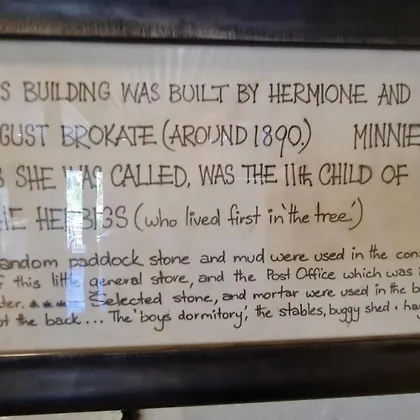 S BUILDING WAS BUILT BY HERMIONE AND
GUST BROKATE (AROUND 1890.) MINNIE
S SHE WAS CALLED, WAS THE 11th CHILD OF
HE HERBIGS (who lived first in 'the tree')
andom paddock stone and mud were used in the con
f this little general store, and the Post Office which was
der. Selected stone, and mortar were used in the b
t the back... The 'boys dormitory', the stables, buggy shed + ha